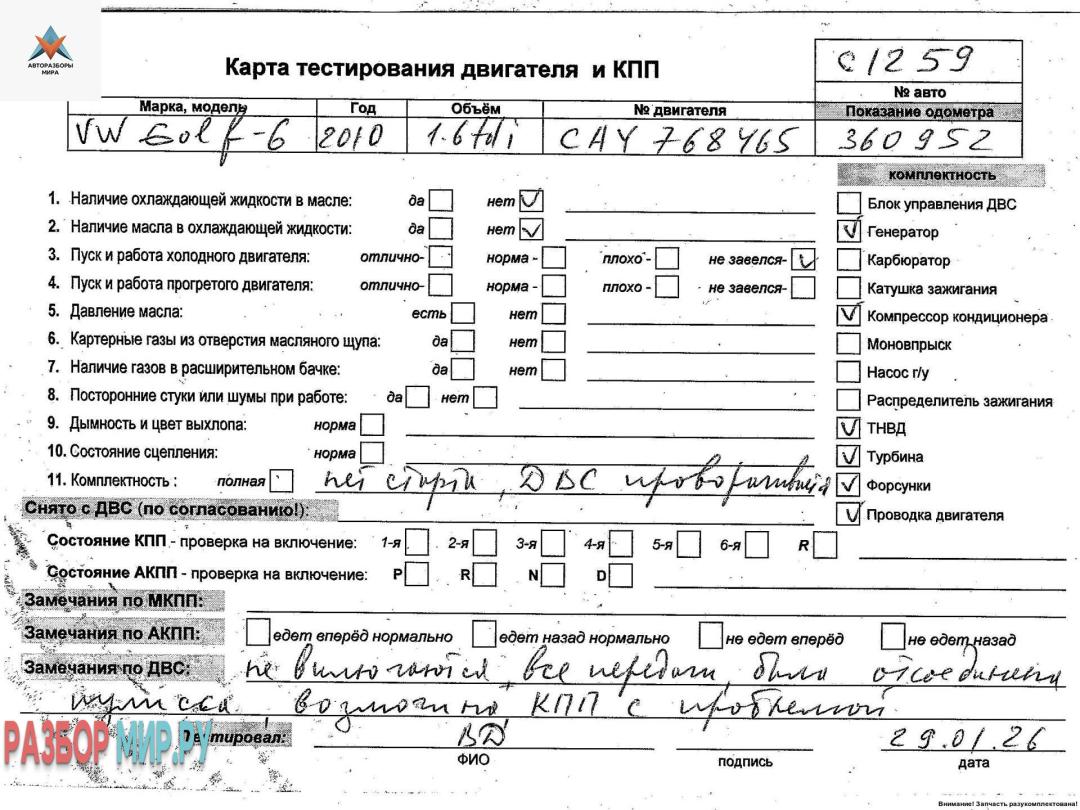 АВТОРАЗБОРЫ
МИРА
Карта тестирования двигателя и КПП
C1259
№ авто
Марка, модель Год Объём № двигателя Показание одометра
VW Golf-6 2010 1.6 tdi CAY 768465 360952
комплектность
1. Наличие охлаждающей жидкости в масле: да нет
Блок управления ДВС
2. Наличие масла в охлаждающей жидкости: да нет
Генератор
3. Пуск и работа холодного двигателя: отлично- норма - плохо - не завелся-
Карбюратор
4. Пуск и работа прогретого двигателя: отлично- норма - плохо - не завелся-
Катушка зажигания
5. Давление масла: есть нет
Компрессор кондиционера
6. Картерные газы из отверстия масляного щупа: да нет
Моновпрыск
7. Наличие газов в расширительном бачке: да нет
Насос г/у
8. Посторонние стуки или шумы при работе: да нет
Распределитель зажигания
9. Дымность и цвет выхлопа: норма
ТНВД
10. Состояние сцепления: норма
Турбина
11. Комплектность : полная нет старта, ДВС проворачивается
Форсунки
Снято с ДВС (по согласованию!):
Проводка двигателя
Состояние КПП - проверка на включение: 1-я 2-я 3-я 4-я 5-я 6-я R
Состояние АКПП - проверка на включение: P R N D
Замечания по МКПП:
Замечания по АКПП: едет вперёд нормально едет назад нормально не едет вперёд не едет назад
Замечания по ДВС: не вклюгаются все передачи, была отсоединена
кулисса возможно КПП с проблемой
РАЗБОРМИР.РУ
тестировал: ВД 29.01.26
ФИО подпись дата
Внимание! Запчасть разукомплектована!